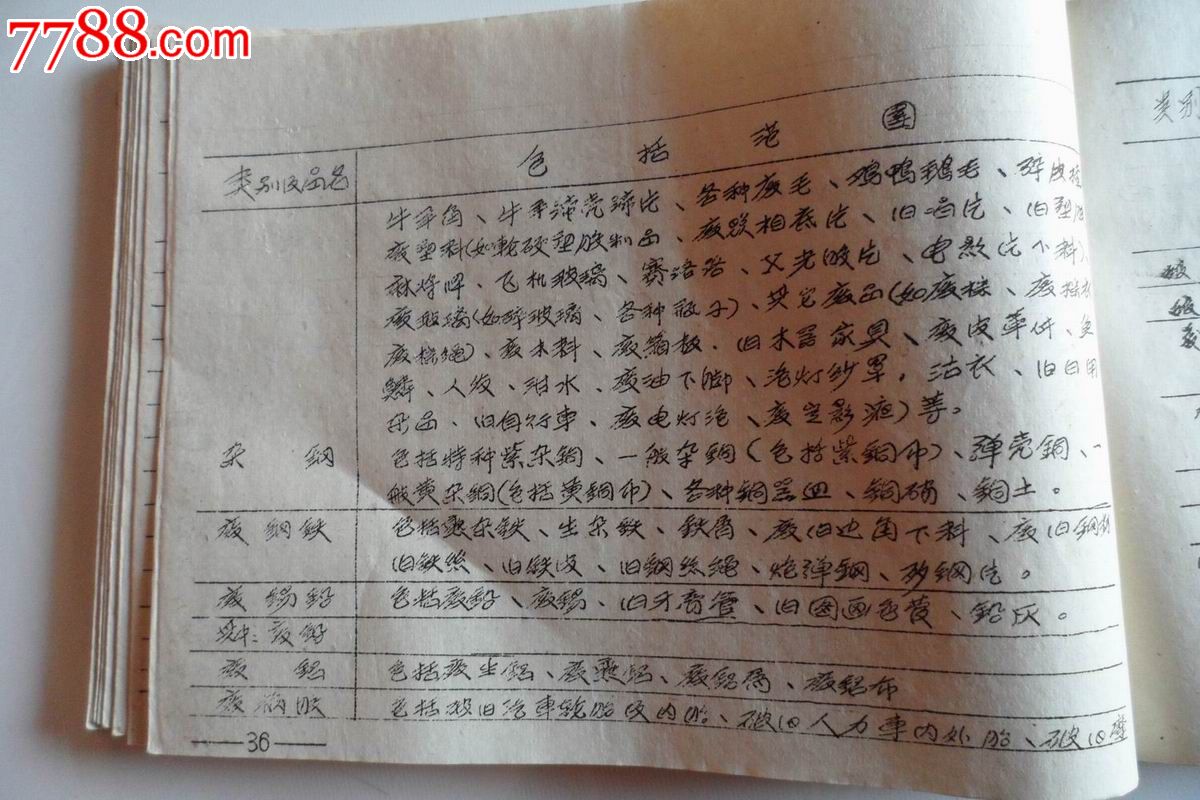 7788.com
包括范围
类别及品名
牛羊角、牛羊蹄壳蹄片、各种废毛、鸡鸭鹅毛、碎皮
废塑料(如軟硬塑胶制品、废照相底片、旧唱片、旧塑胶
麻将牌、飞机玻璃、赛洛洛、叉光胶片、电影片下料)、
废玻璃(如碎玻璃、各种瓶子)、其它废品(如废棕、废棕
废棕绳)、废木料、废箱板、旧木器家具、废皮革件、鱼
鳞、人发、泔水、废油下脚、汽灯纱罩、估衣、旧日用
杂品、旧自行車、废电灯泡、废定影液)等。
杂銅 包括特种紫杂銅、一般杂銅(包括紫銅布)、弹壳銅、一
般黄杂銅(包括黄銅布)、各种銅器皿、銅硝、銅土。
废鋼鉄 包括熟杂鉄、生杂鉄、鉄屑、废旧边角下料、废旧鋼材
旧鉄丝、旧鉄皮、旧鋼丝绳、炮弹鋼、矽鋼片。
废錫鉛 包括废鉛、废錫、旧牙膏管、旧图画色管、鉛灰。
其中:废鉛
废鋁 包括废生鋁、废熟鋁、废鋁屑、废鋁布
废橡胶 包括破旧汽車轮胎及内胎、破旧人力車内外胎、破旧
36
类别
废
废
废